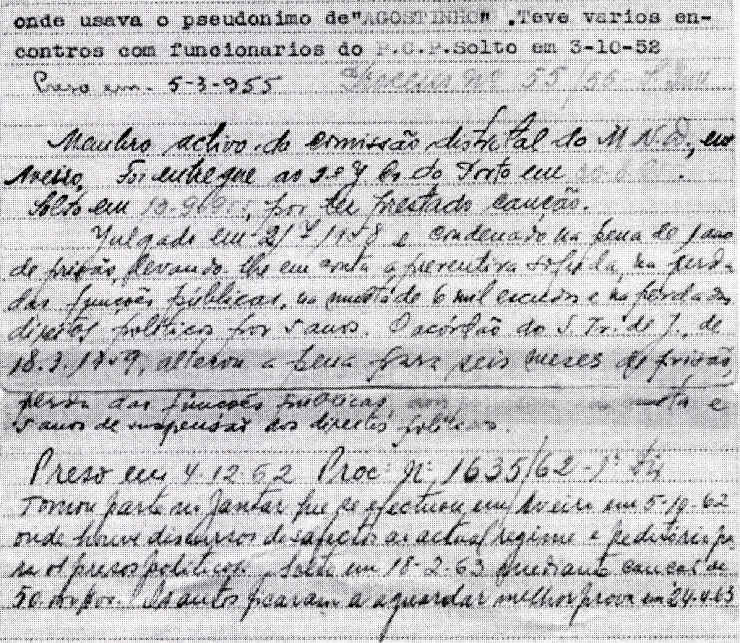 onde usava o pseudonimo de"AGOSTINHO" .Teve varios en-
contros com funcionarios do P.C.P.Solto em 3-10-52
Preso em. 5-3-955 Processo Nº 55/55-
Membro activo da comissão distrital do M.N.D., em
Aveiro, Foi entregue ao do Porto em
Solto em por ter prestado caução.
Julgado em 21/7/1958 e condenado na pena de 1 ano
de prisão, levando-lhe em conta a preventiva sofrida, na perda
das funções públicas, na multa de 6 mil escudos e na perda dos
direitos políticos por 5 anos. O acórdão do S. Tr. de J., de
18.3.1959, alterou a pena para seis meses de prisão,
perda das funções públicas, multa e
5 anos de suspensão dos direitos políticos.
Preso em 4.12.62 Proc: Nº 1635/62-1ª Div
Tomou parte no jantar que se efectuou em Aveiro em 5-10-62
onde houve discursos de ao actual regime e peditório pa-
ra os presos políticos. Solto em 18-2-63 mediante caução de
50.000\$00. Os autos ficaram a aguardar melhor prova em 24.4.63